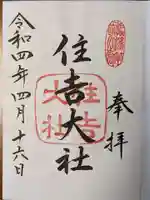 奉拝
住吉大社
住吉大社
令和四年四月十六日